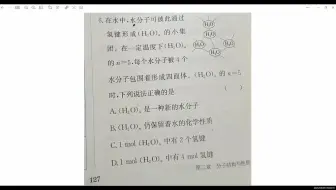 6.在水中,水分子可彼此通过
氢键形成(H₂O)ₙ的小集
团。在一定温度下(H₂O)ₙ
的n=5,每个水分子被4个
水分子包围着形成四面体。(H₂O)ₙ的n=5
时,下列说法正确的是 ( )
A.(H₂O)ₙ是一种新的水分子
B.(H₂O)ₙ仍保留着水的化学性质
C.1 mol (H₂O)ₙ中有2个氢键
D.1 mol (H₂O)ₙ中有4 mol氢键
H₂O
H₂O
H₂O
H₂O
H₂O
127
第二章 分子结构与性质